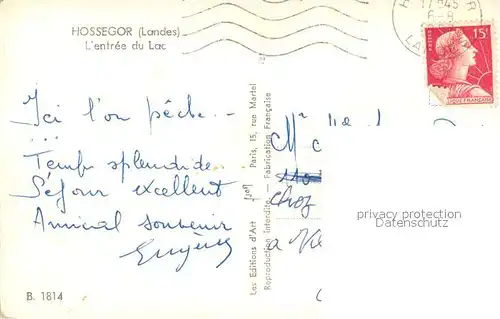 HOSSEGOR (Landes)
L'entrée du Lac
Ici l'on pêche...
...
Temps splendide
Séjour excellent
Amical souvenir
B. 1814
Les Editions d'Art - Paris, 15, rue Martel
Reproduction Interdite - Fabrication Française
chez
à
POSTES
15F
privacy protection
Datenschutz